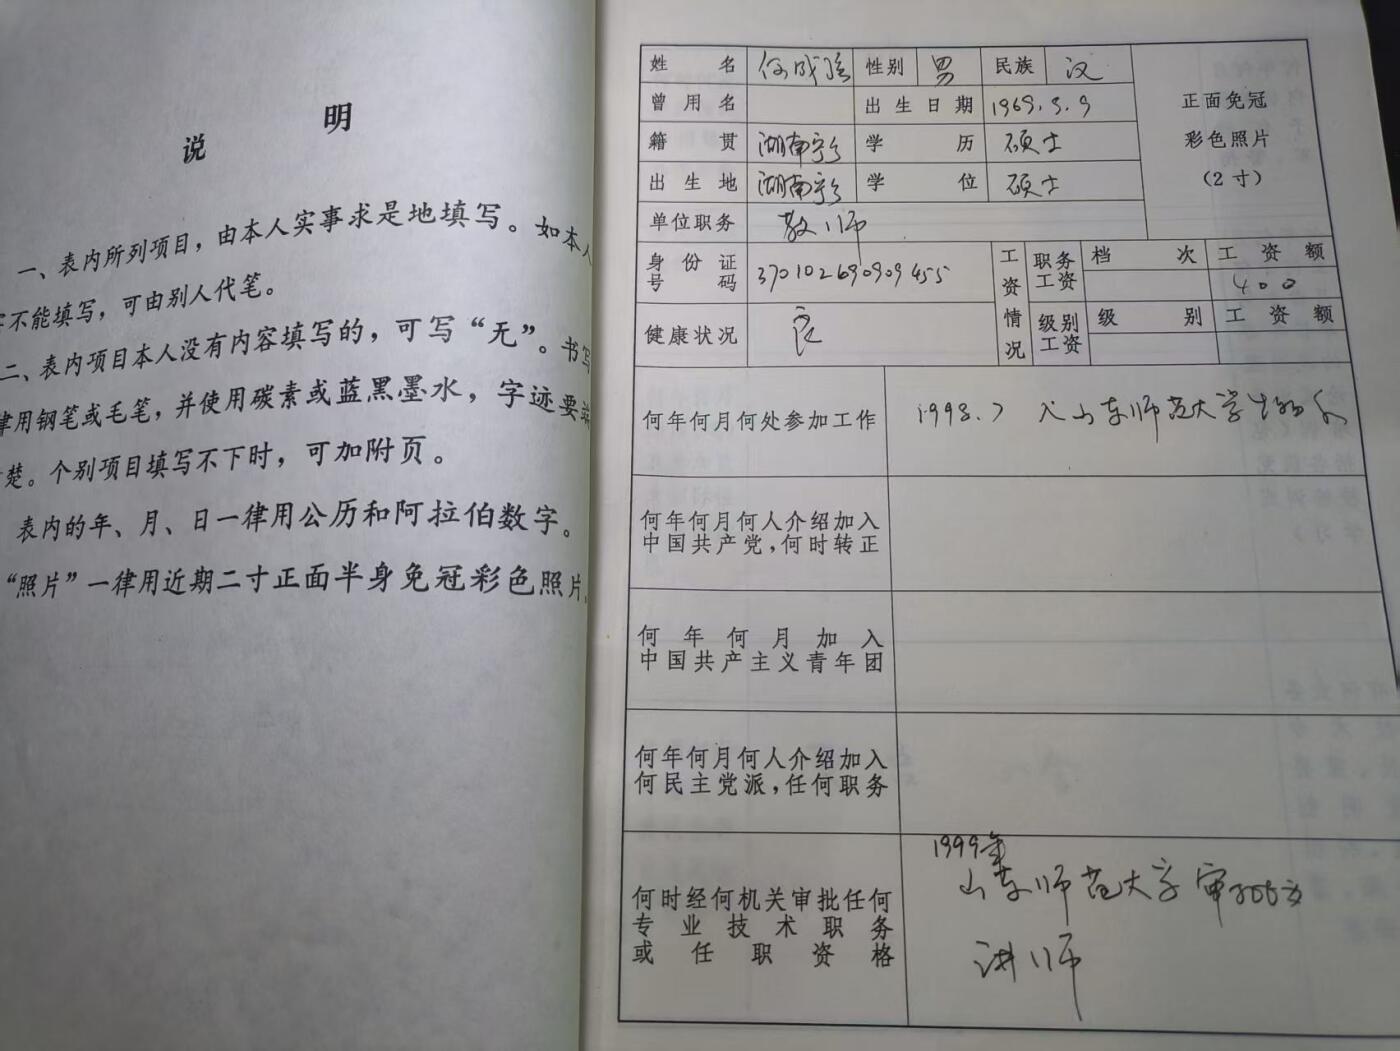 说 明
一、表内所列项目，由本人实事求是地填写。如本人
不能填写，可由别人代笔。
二、表内项目本人没有内容填写的，可写“无”。书写
律用钢笔或毛笔，并使用碳素或蓝黑墨水，字迹要
楚。个别项目填写不下时，可加附页。
表内的年、月、日一律用公历和阿拉伯数字。
“照片”一律用近期二寸正面半身免冠彩色照片
姓名 何成 性别 男 民族 汉
曾用名 出生日期 1969.9.9
籍贯 湖南宁乡 学历 硕士
出生地 湖南宁乡 学位 硕士
正面免冠
彩色照片
（2寸）
单位职务 教师
身份证
号码 370102690909455
工资情况
职务
工资
档次 工资额
400
健康状况 良
级别
工资
级别 工资额
何年何月何处参加工作 1998.7 入山东师范大学生物系
何年何月何人介绍加入
中国共产党，何时转正
何年何月加入
中国共产主义青年团
何年何月何人介绍加入
何民主党派，任何职务
何时经何机关审批任何
专业技术职务
或任职资格
1999年
山东师范大学审
讲师